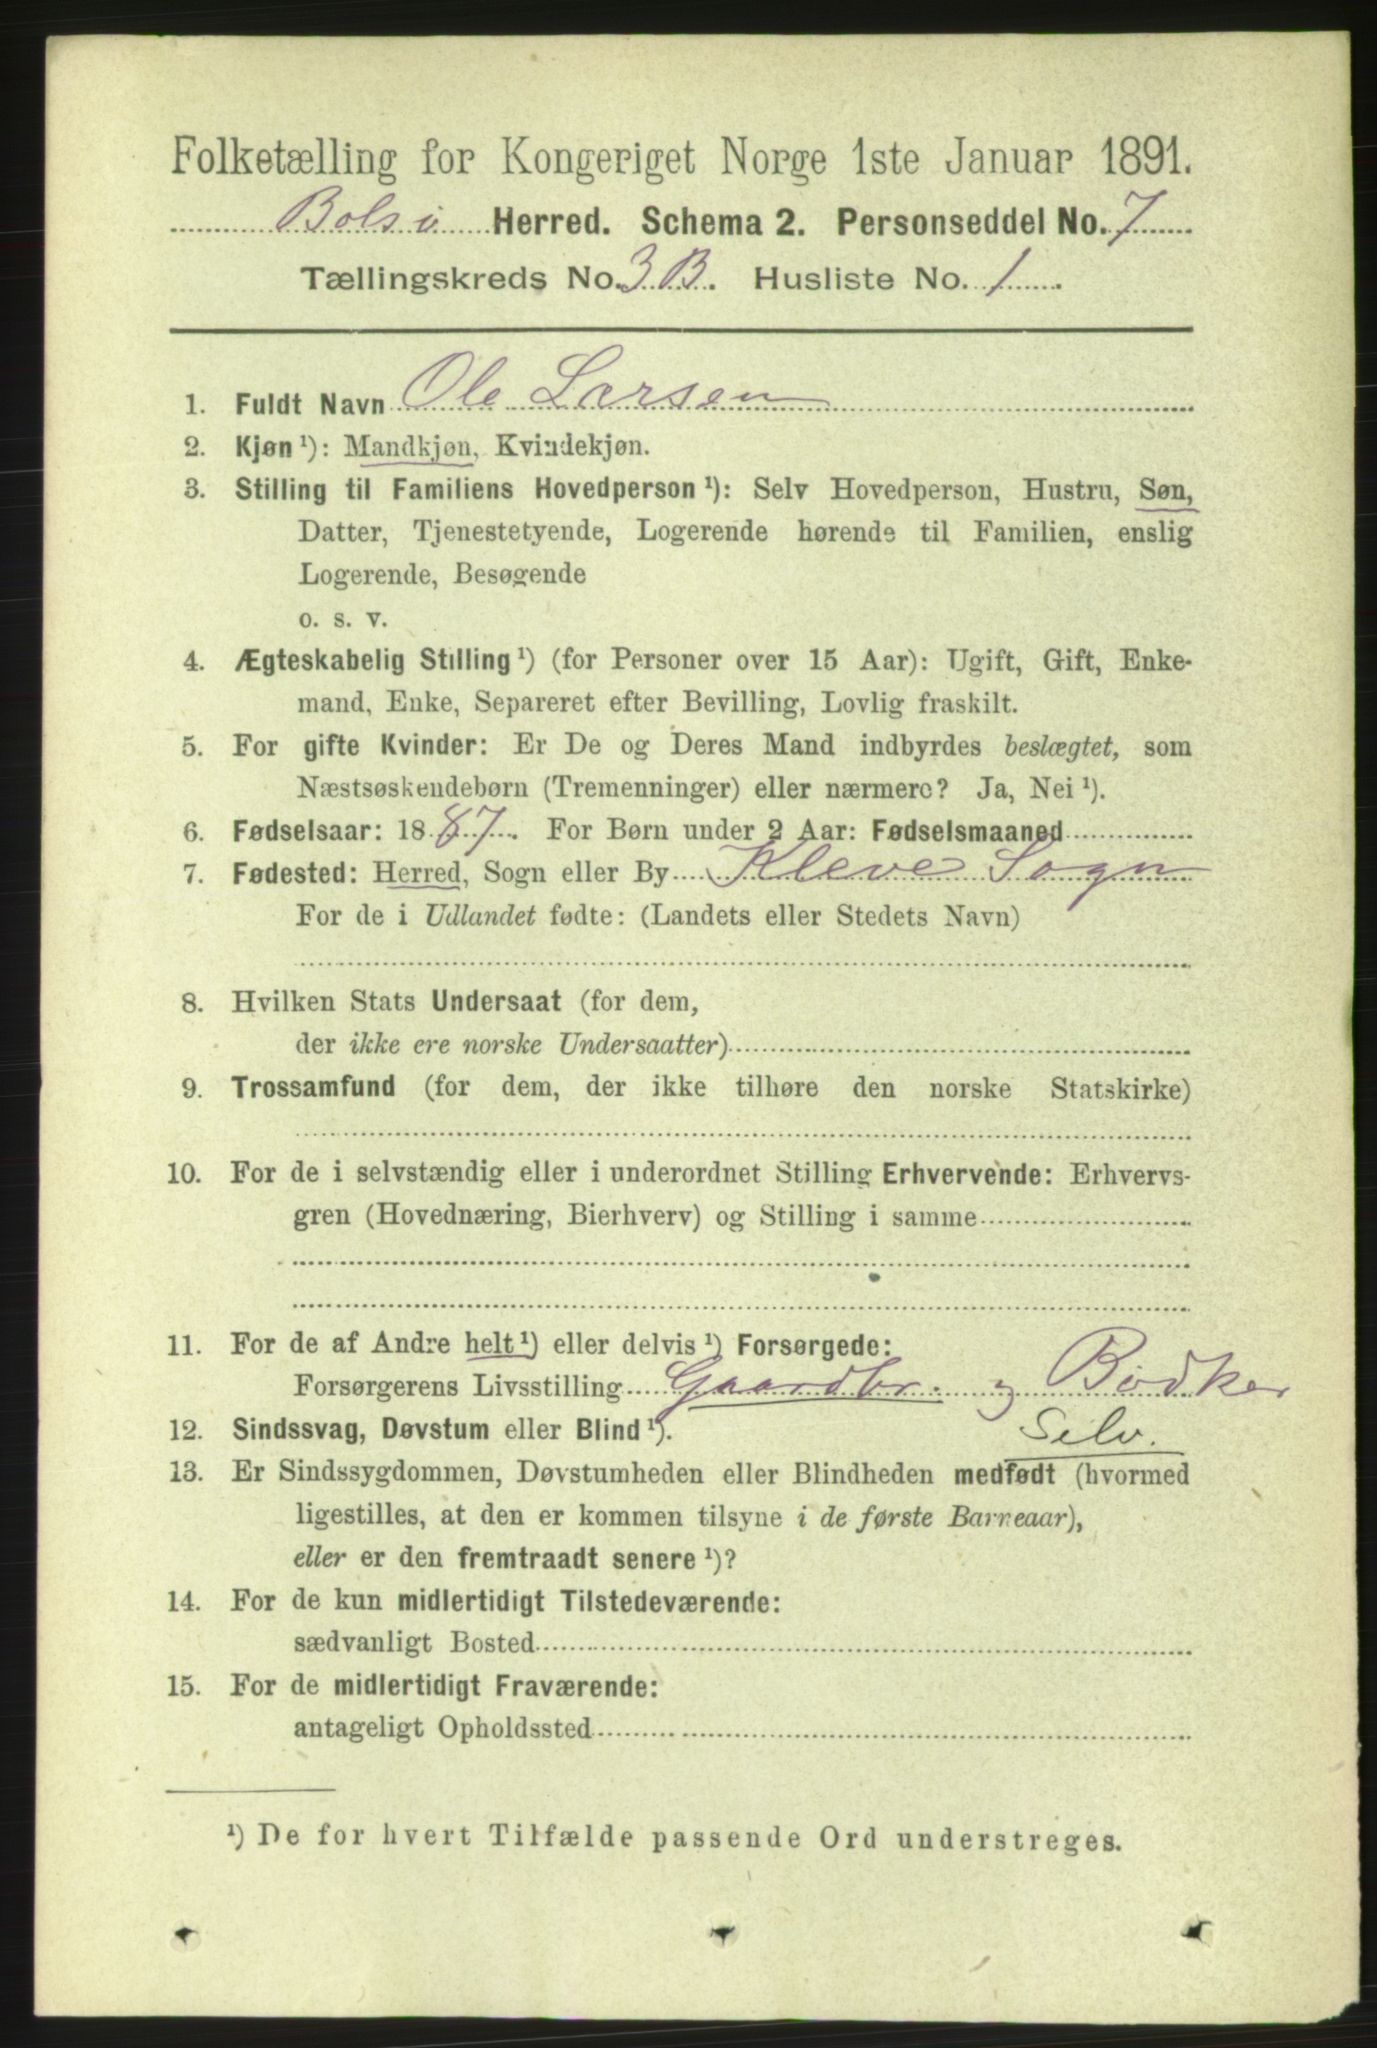 Folketælling for Kongeriget Norge 1ste Januar 1891.
Bolsø Herred. Schema 2. Personseddel No. 7
Tællingskreds No. 3 B. Husliste No. 1
1. Fuldt Navn Ole Larsen
2. Kjøn ¹): Mandkjøn, Kvindekjøn.
3. Stilling til Familiens Hovedperson ¹): Selv Hovedperson, Hustru, Søn,
Datter, Tjenestetyende, Logerende hørende til Familien, enslig
Logerende, Besøgende
o. s. v.
4. Ægteskabelig Stilling ¹) (for Personer over 15 Aar): Ugift, Gift, Enke-
mand, Enke, Separeret efter Bevilling, Lovlig fraskilt.
5. For gifte Kvinder: Er De og Deres Mand indbyrdes beslægtet, som
Næstsøskendebørn (Tremenninger) eller nærmere? Ja, Nei ¹).
6. Fødselsaar: 1887. For Børn under 2 Aar: Fødselsmaaned
7. Fødested: Herred, Sogn eller By Kleve Sogn
For de i Udlandet fødte: (Landets eller Stedets Navn)
8. Hvilken Stats Undersaat (for dem,
der ikke ere norske Undersaatter)
9. Trossamfund (for dem, der ikke tilhøre den norske Statskirke)
10. For de i selvstændig eller i underordnet Stilling Erhvervende: Erhvervs-
gren (Hovednæring, Bierhverv) og Stilling i samme
11. For de af Andre helt ¹) eller delvis ¹) Forsørgede:
Forsørgerens Livsstilling Gaardbr. og Bødker
Selv.
12. Sindssvag, Døvstum eller Blind ¹).
13. Er Sindssygdommen, Døvstumheden eller Blindheden medfødt (hvormed
ligestilles, at den er kommen tilsyne i de første Barneaar),
eller er den fremtraadt senere ¹)?
14. For de kun midlertidigt Tilstedeværende:
sædvanligt Bosted
15. For de midlertidigt Fraværende:
antageligt Opholdssted
¹) De for hvert Tilfælde passende Ord understreges.